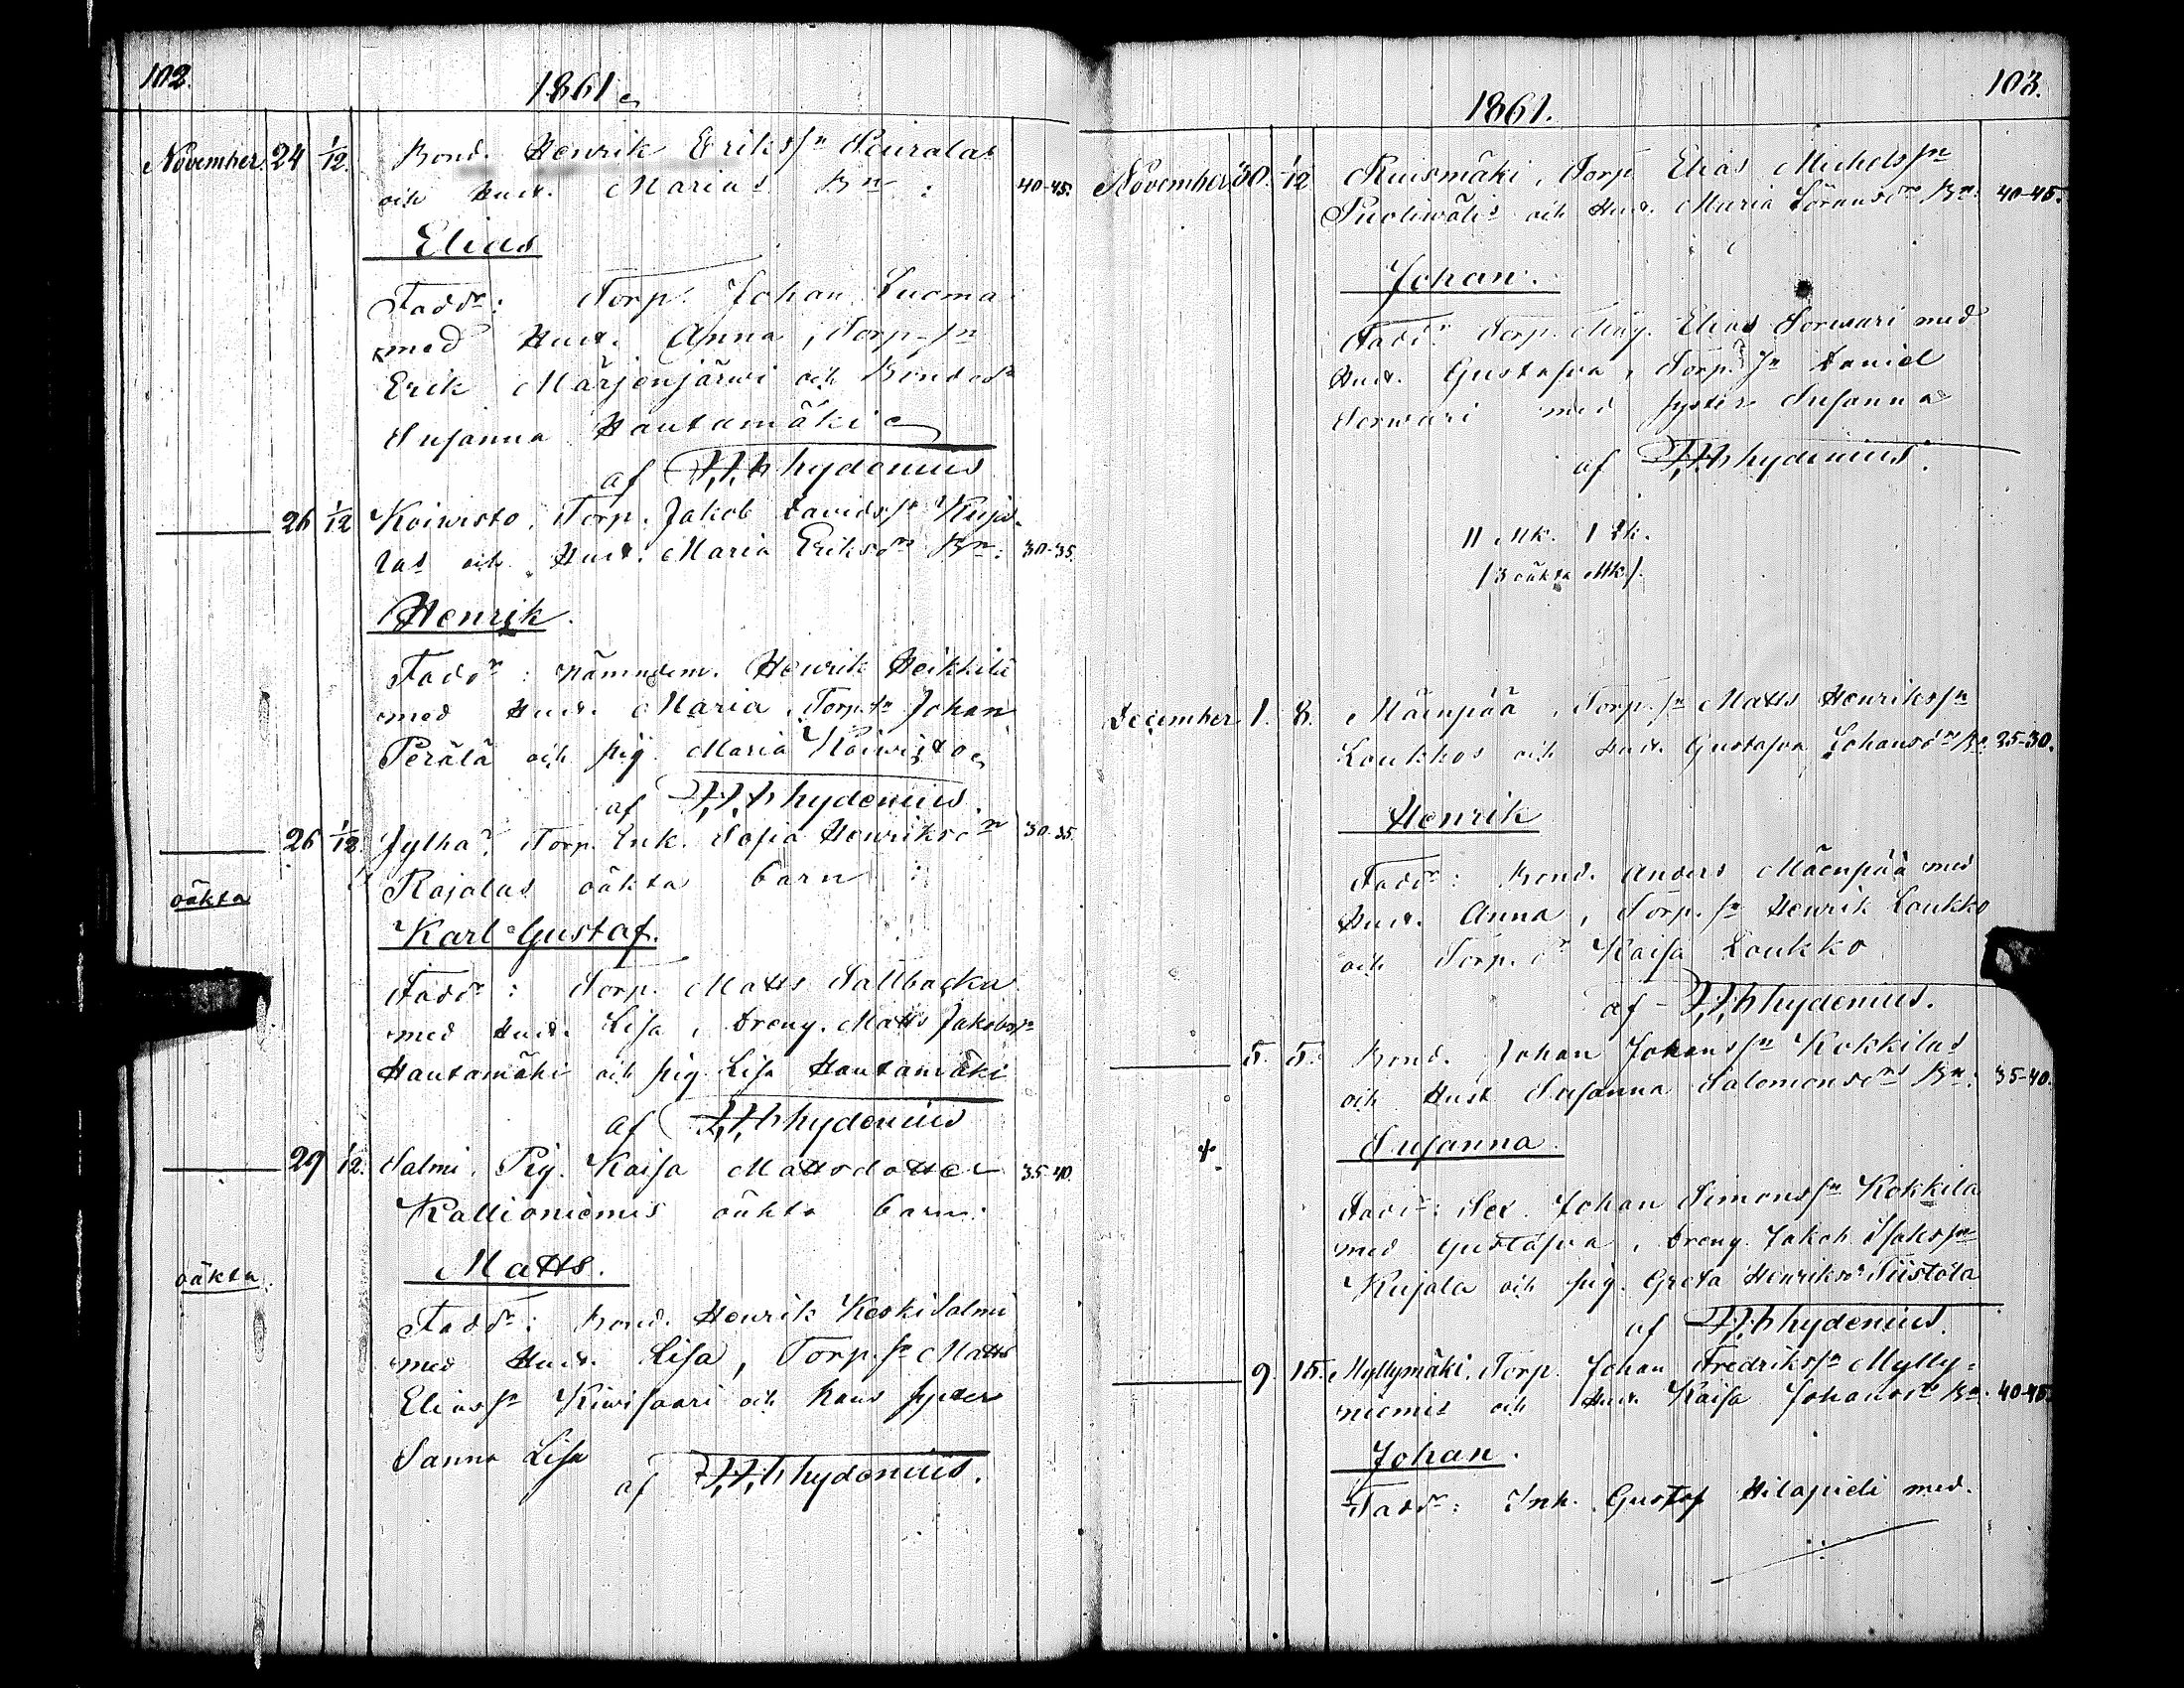 102.
1861
November. 24 1/12. Bond. Henrik Erikssn Peuralas
och Hust. Marias Bn: 40-45.
Elias
Faddr: Torp. Johan Luoma
med Hust. Anna, Torp-sn
Erik Märjenjärwi och Bondedr
Susanna Hautamäki
af hydenius
26 1/12 Koiwisto, Torp. Jakob Davidssn Kuja-
las och Hust. Maria Eriksdrs Bn: 30-35.
Henrik.
Faddr: Nämndem. Henrik Heikkilä
med Hust. Maria, Torp.sn Johan
Perälä och pig. Maria Koiwisto
af hydenius.
26 1/12. Jylhä, Torp. Enk. Sofia Henriksdr 30-35.
Rajalas oäkta barn:
oäkta
Karl Gustaf.
Faddr: Torp. Matts Sallbacka
med Hust. Lisa, Dreng. Matts Jakobsn
Hautamäki och pig. Lisa Hautamäki
af hydenius
29 1/12. Salmi, Pig. Kaisa Mattsdotter 35-40.
Kallioniemis oäkta barn:
oäkta.
Matts.
Faddr: Bond. Henrik KeskiSalmi
med Hust. Lisa, Torp.sn Matts
Eliassn Kiwisaari och hans syster
Sanna Lisa
af hydenius.
103.
1861.
November 30. 1/12 Ruismäki, Torp Elias Michelssn
Puoliwälis och Hust. Maria Göransdrs Bn: 40-45.
Johan.
Faddr: Torp. Måg. Elias Sorwari med
Hust. Gustafva, Torp. sn Daniel
Sorwari med syster Susanna
af hydenius.
11 Mk. 1 Qk.
/3 oäkta Mk/.
December 1. 8. Mäenpää, Torp. sn Matts Henrikssn
Loukkos och Hust. Gustafva Johansdrs Bn. 25-30.
Henrik
Faddr: Bond. Anders Mäenpää med
Hust. Anna, Torp. sn Henrik Loukko
och Torp. dr Kaisa Loukko
af hydenius.
5. 5. Bond. Johan Johanssn Kokkilas
och Hust Susanna Salomonsdrs Bn: 35-40.
Susanna.
Faddr: Sex. Johan Simonssn Kokkila
med Gustafva, Dreng. Jakob Isakssn
Kujala och pig. Greta Henriksdr Tiistola
af hydenius.
9. 15. Myllymäki, Torp. Johan Fredrikssn Mylly-
niemis och Hust. Kaisa Johansdrs Bn. 40-45.
Johan.
Faddr: Inh. Gustaf Hilapieli med.